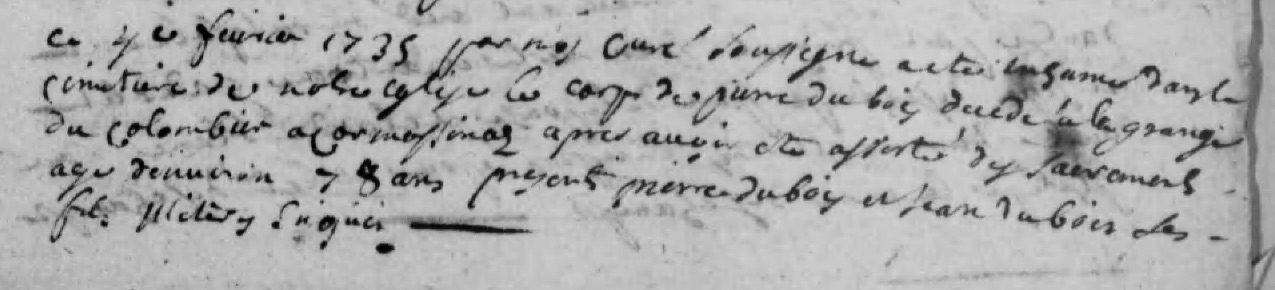 ce 4e fevrier 1735 par nos curé soussigne a ete inhumé dans le
cimetiere de notre eglise le corps de pierre du bois decedé a la grange
du colombier a cormassinas apres avoir ete assisté des sacrements
age d'environ 78 ans presents pierre dubois et Jean du bois ses
fils